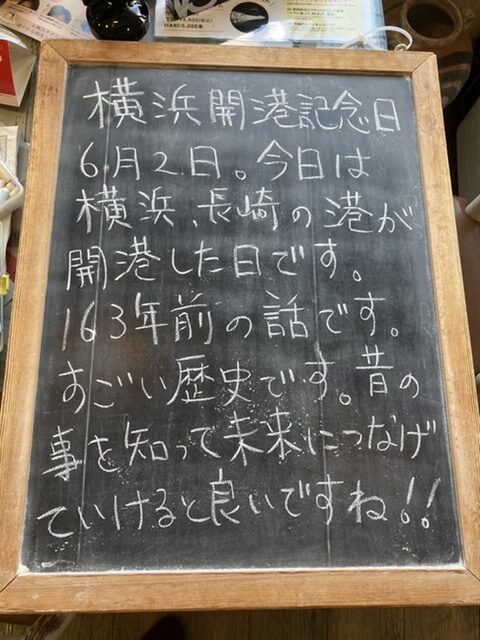 HARI:5,000本
横浜開港記念日
6月2日。今日は
横浜、長崎の港が
開港した日です。
163年前の話です。
すごい歴史です。昔の
事を知って未来につなげ
ていけると良いですね!!